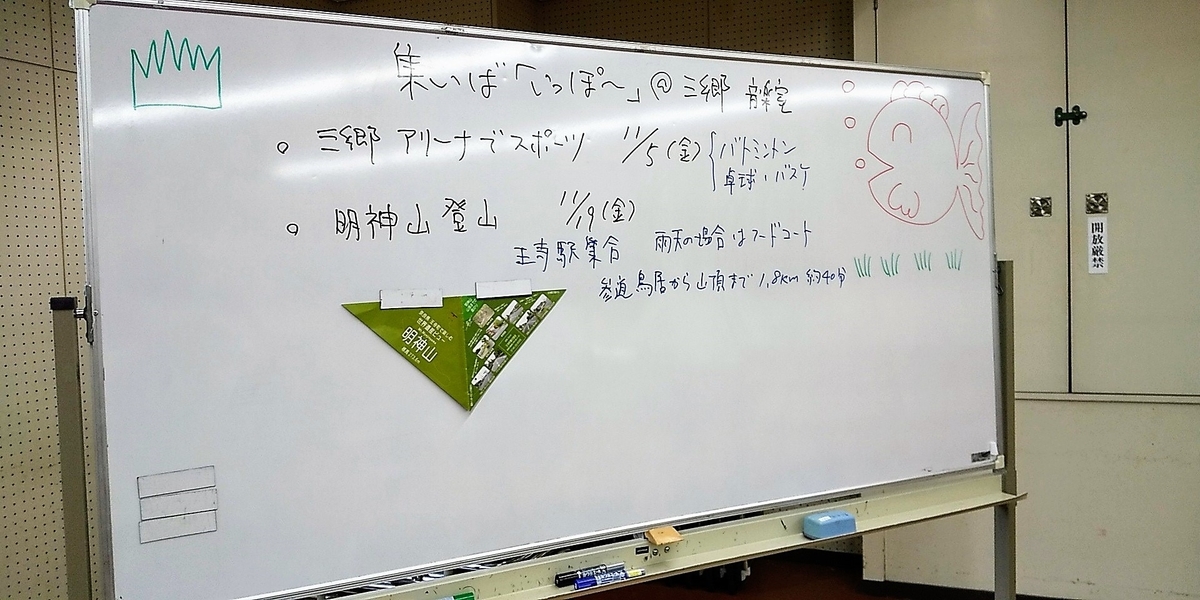 集いば「いっぽ～」@ 三郷 音楽室
○ 三郷 アリーナでスポーツ 11/5(金) バトミントン
卓球・バスケ
○ 明神山 登山 11/19(金)
王寺駅集合 雨天の場合はフードコート
参道鳥居から山頂まで 1.8km 約40分
世界遺産ビュー
明神山
開放厳禁